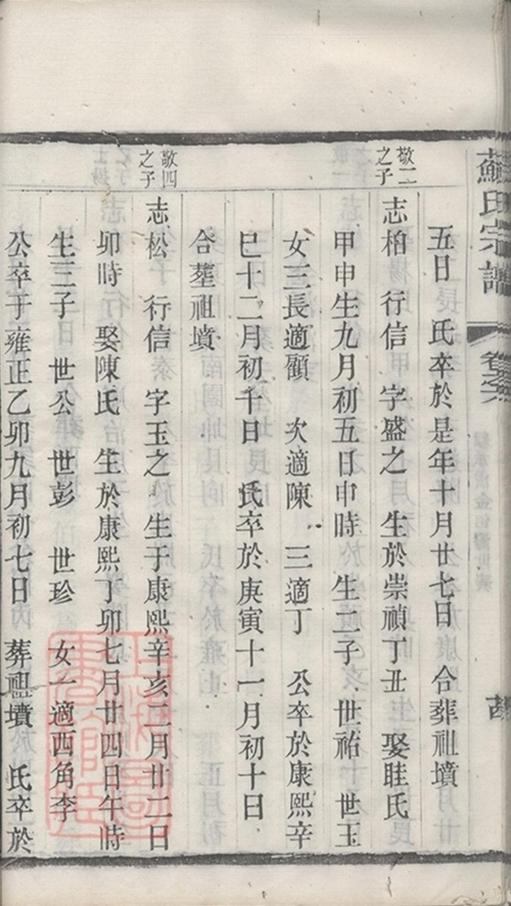 蘇氏宗譜
卷之六
五日 氏卒於是年十月廿七日 合葬祖墳
敬二之子
志柏 行信 字盛之 生於崇禎丁丑 娶眭氏
甲申生九月初五日申時 生二子 世祐 世玉
女三長適顧 次適陳 三適丁 公卒於康熙辛
巳十二月初千日 氏卒於庚寅十一月初十日
合塟祖墳
敬四之子
志松 行信 字玉之 生于康熙辛亥二月廿二日
卯時 娶陳氏 生於康熙丁卯七月廿四日午時
生三子 世公 世彭 世珍 女一適西角李
公卒于雍正乙卯九月初七日 葬祖墳 氏卒於